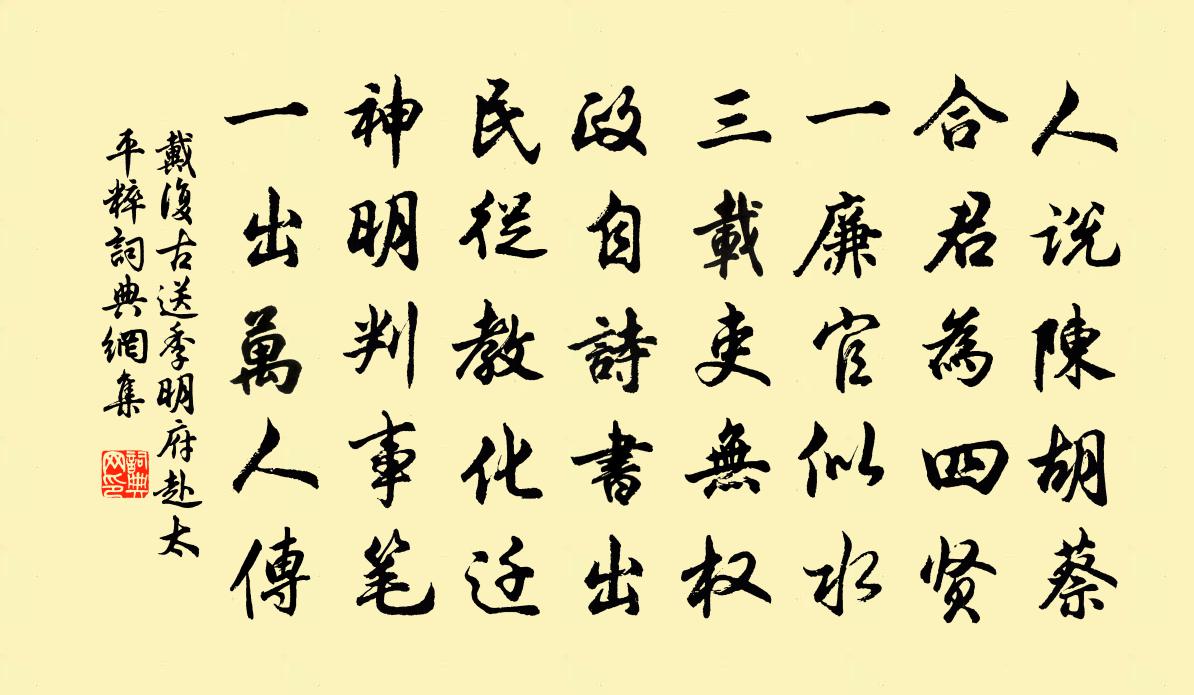 人说陳胡蔡
合君為四贤
一廉官似水
三載吏無权
政自詩書出
民從教化迁
神明判事笔
一出萬人傳
戴復古送季明府赴太
平粹詞典網集
詞典
网印